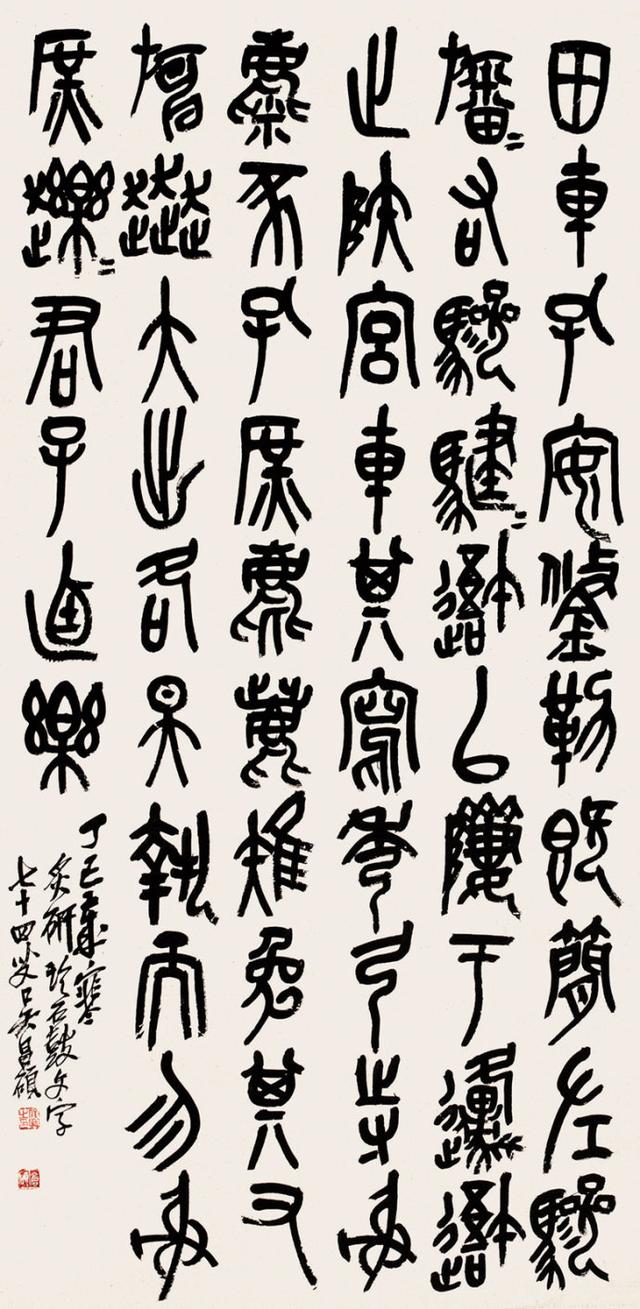 田車孔安鋚勒既簡左驂
旛=右驂騝=䢩以隮于邍䢩
止陝宮車其寫秀弓寺射
麋豕孔庶麀鹿雉兔其又
大出各昊執而勿射
庶趯=君子逌樂
丁巳歲寒
炙研臨石鼓文字
七十四叟吳昌碩